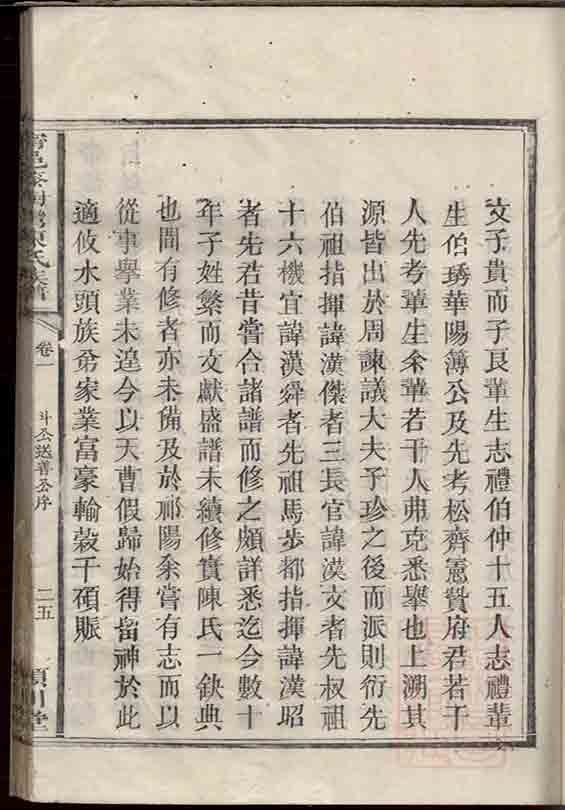 文子貴而子艮軰生志禮伯仲十五人志禮軰
生伯琇華陽簿公及先考松齊憲贒府君若干
人先考軰生余軰若干人弗克悉舉也上溯其
源皆出於周諫議大夫子珍之後而派則衍先
伯祖指揮諱漢傑者三長官諱漢文者先叔祖
十六機宜諱漢舜者先祖馬步都指揮諱漢昭
者先君昔嘗合諸譜而修之頗詳悉迄今數十
年子姓繁而文獻盛譜未續修實陳氏一欽典
也間有修者亦未備及於祁陽余嘗有志而以
從事舉業未遑今以天曹假歸始得畱神於此
適攸水頭族弟家業富豪輸榖干碩賑
陳氏族譜
卷一
斗公送善公序
二五
潁川堂